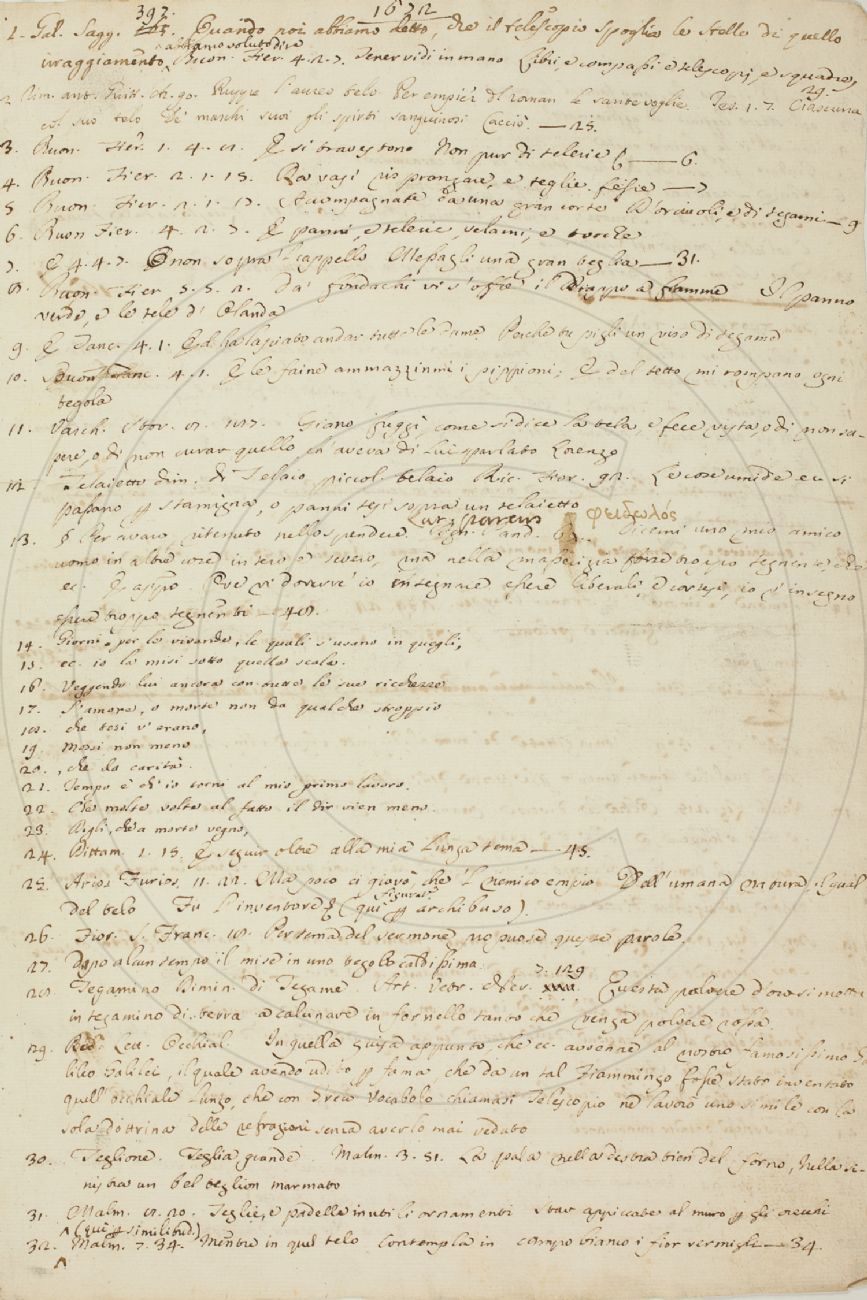 392. 1622
1. Gal. Sagg. 263. Quando noi abbiamo detto, che il telescopio spoglia le stelle di quello
irraggiamento, abbiamo voluto dire Buon. Fier. 4. 2. 7. Tener vidi in mano Libri, e compassi e telescopj, e squadre,
29.
2. Rim. ant. Guitt. 90. Ruppe l'aureo telo Per empier di roman le sante voglie. Tes. 1. 7. Ciascuna
col suo telo De' maschi suoi gli spirti sanguinosi Cacciò. — 25.
3. Buon. Fier. 1. 4. 6. E si travestono Non pur di telerie — 6.
4. Buon. Fier. 2. 1. 15. Ra vasi e teglie fesse — 7
5 Buon. Fier. 2. 1. 17. Accompagnate da una gran corte D'orciuoli, e di tegami — 9
6. Buon Fier. 4. 2. 7. E panni, e telerie, velami, e tocche
7. E 4. 4. 7. E non sopra 'l cappello Mepagli una gran teglia — 31.
8. Buon. Fier 5. 5. 2. Da' fondachi vi s'offre il Drappo a fiamme Il panno
verde, e le tele di Olanda
9. E Tanc. 4. 1. Ed ha lasciato andar tutte le dame Perchè tu pigli un viso di tegame
10. Buon Tanc. 4. 1. E le faine ammazzinmi i pippioni; E del tetto mi rompano ogni
tegola
11. Varch. Stor. Giano fuggì, come si dice la tela, e fece vista, o di non sa-
pere, o di non curar quello, ch'aveva di lui sparlato Lorenzo
12. Telaietto dim. di Telaio, piccol telaio Ric. Fior. 92. Le cose umide ec si
passano p stamigna, o panni tesi sopra un telaietto
Lat. parcus φειδωλός
13. § Per avaro, ritenuto nello spendere. and. 63. Dicemi uno mio amico
uomo in altre cose intero e severo, ma nella masserizia forse troppo tegnente, che
ec. E appo. Ove vi doverre' io insegnare essere liberali, e cortesi, io v'insegno
essere troppo tegnenti — 48.
14. Giorni, per le vivande, le quali s'usano in quegli,
15. ec. io la misi sotto quella scala.
16. Veggendo lui ancora con tutte le sue ricchezze
17. S'amore, o morte non da qualche stroppio
18. che tesi v'erano,
19. Messi non meno
20. , che la carità.
21. Tempo è ch'io torni al mio primo lavoro.
22. Che molte volte al fatto il dir vien meno.
23. Figli, che a morte vegno,
24. Dittam. 1. 15. E seguir oltre alla mia lunga tema — 45.
25. Arios. Furios. 11. 22. Ma poco ci giovò, che 'l nemico empio Dall'umana natura, il qual
del telo Fu l'inventore (qui figurat. p archibuso).
26. Fior. S. Franc. 18. Per tema del sermone propuose queste parole.
27. Dopo alcun tempo il mise in uno tegolo caldissima.
7. 129
28. Tegamino Dimin. di Tegame. Art. Vetr. Ner. Questa polvere d'oro si metta
in tegamino di terra a calcinare in fornello tanto che venga polvere rossa.
29. Red. Lett. Occhial. In quella guisa appunto, che ec. avvenne al nostro famosissimo Ga
lileo Galilei, il quale avendo udito p fama, che da un tal Fiammingo fosse stato inventato
quell'occhiale lungo, che con Greco vocabolo chiamasi Telescopio ne lavorò uno simile con la
sola dottrina delle refrazioni senza averlo mai veduto
30. Teglione. Teglia grande. Malm. 3. 51. La pala nella destra tien del forno, Nella si-
nistra un bel teglion marmato
31. Malm. 8. 20. Teglie, e padelle inutili ornamenti Star appiccate al muro p gli orecchi
(qui p similitud.)
32. Malm. 7. 34. Mentre in quel telo Contempla in campo bianco i fior vermigli — 34.